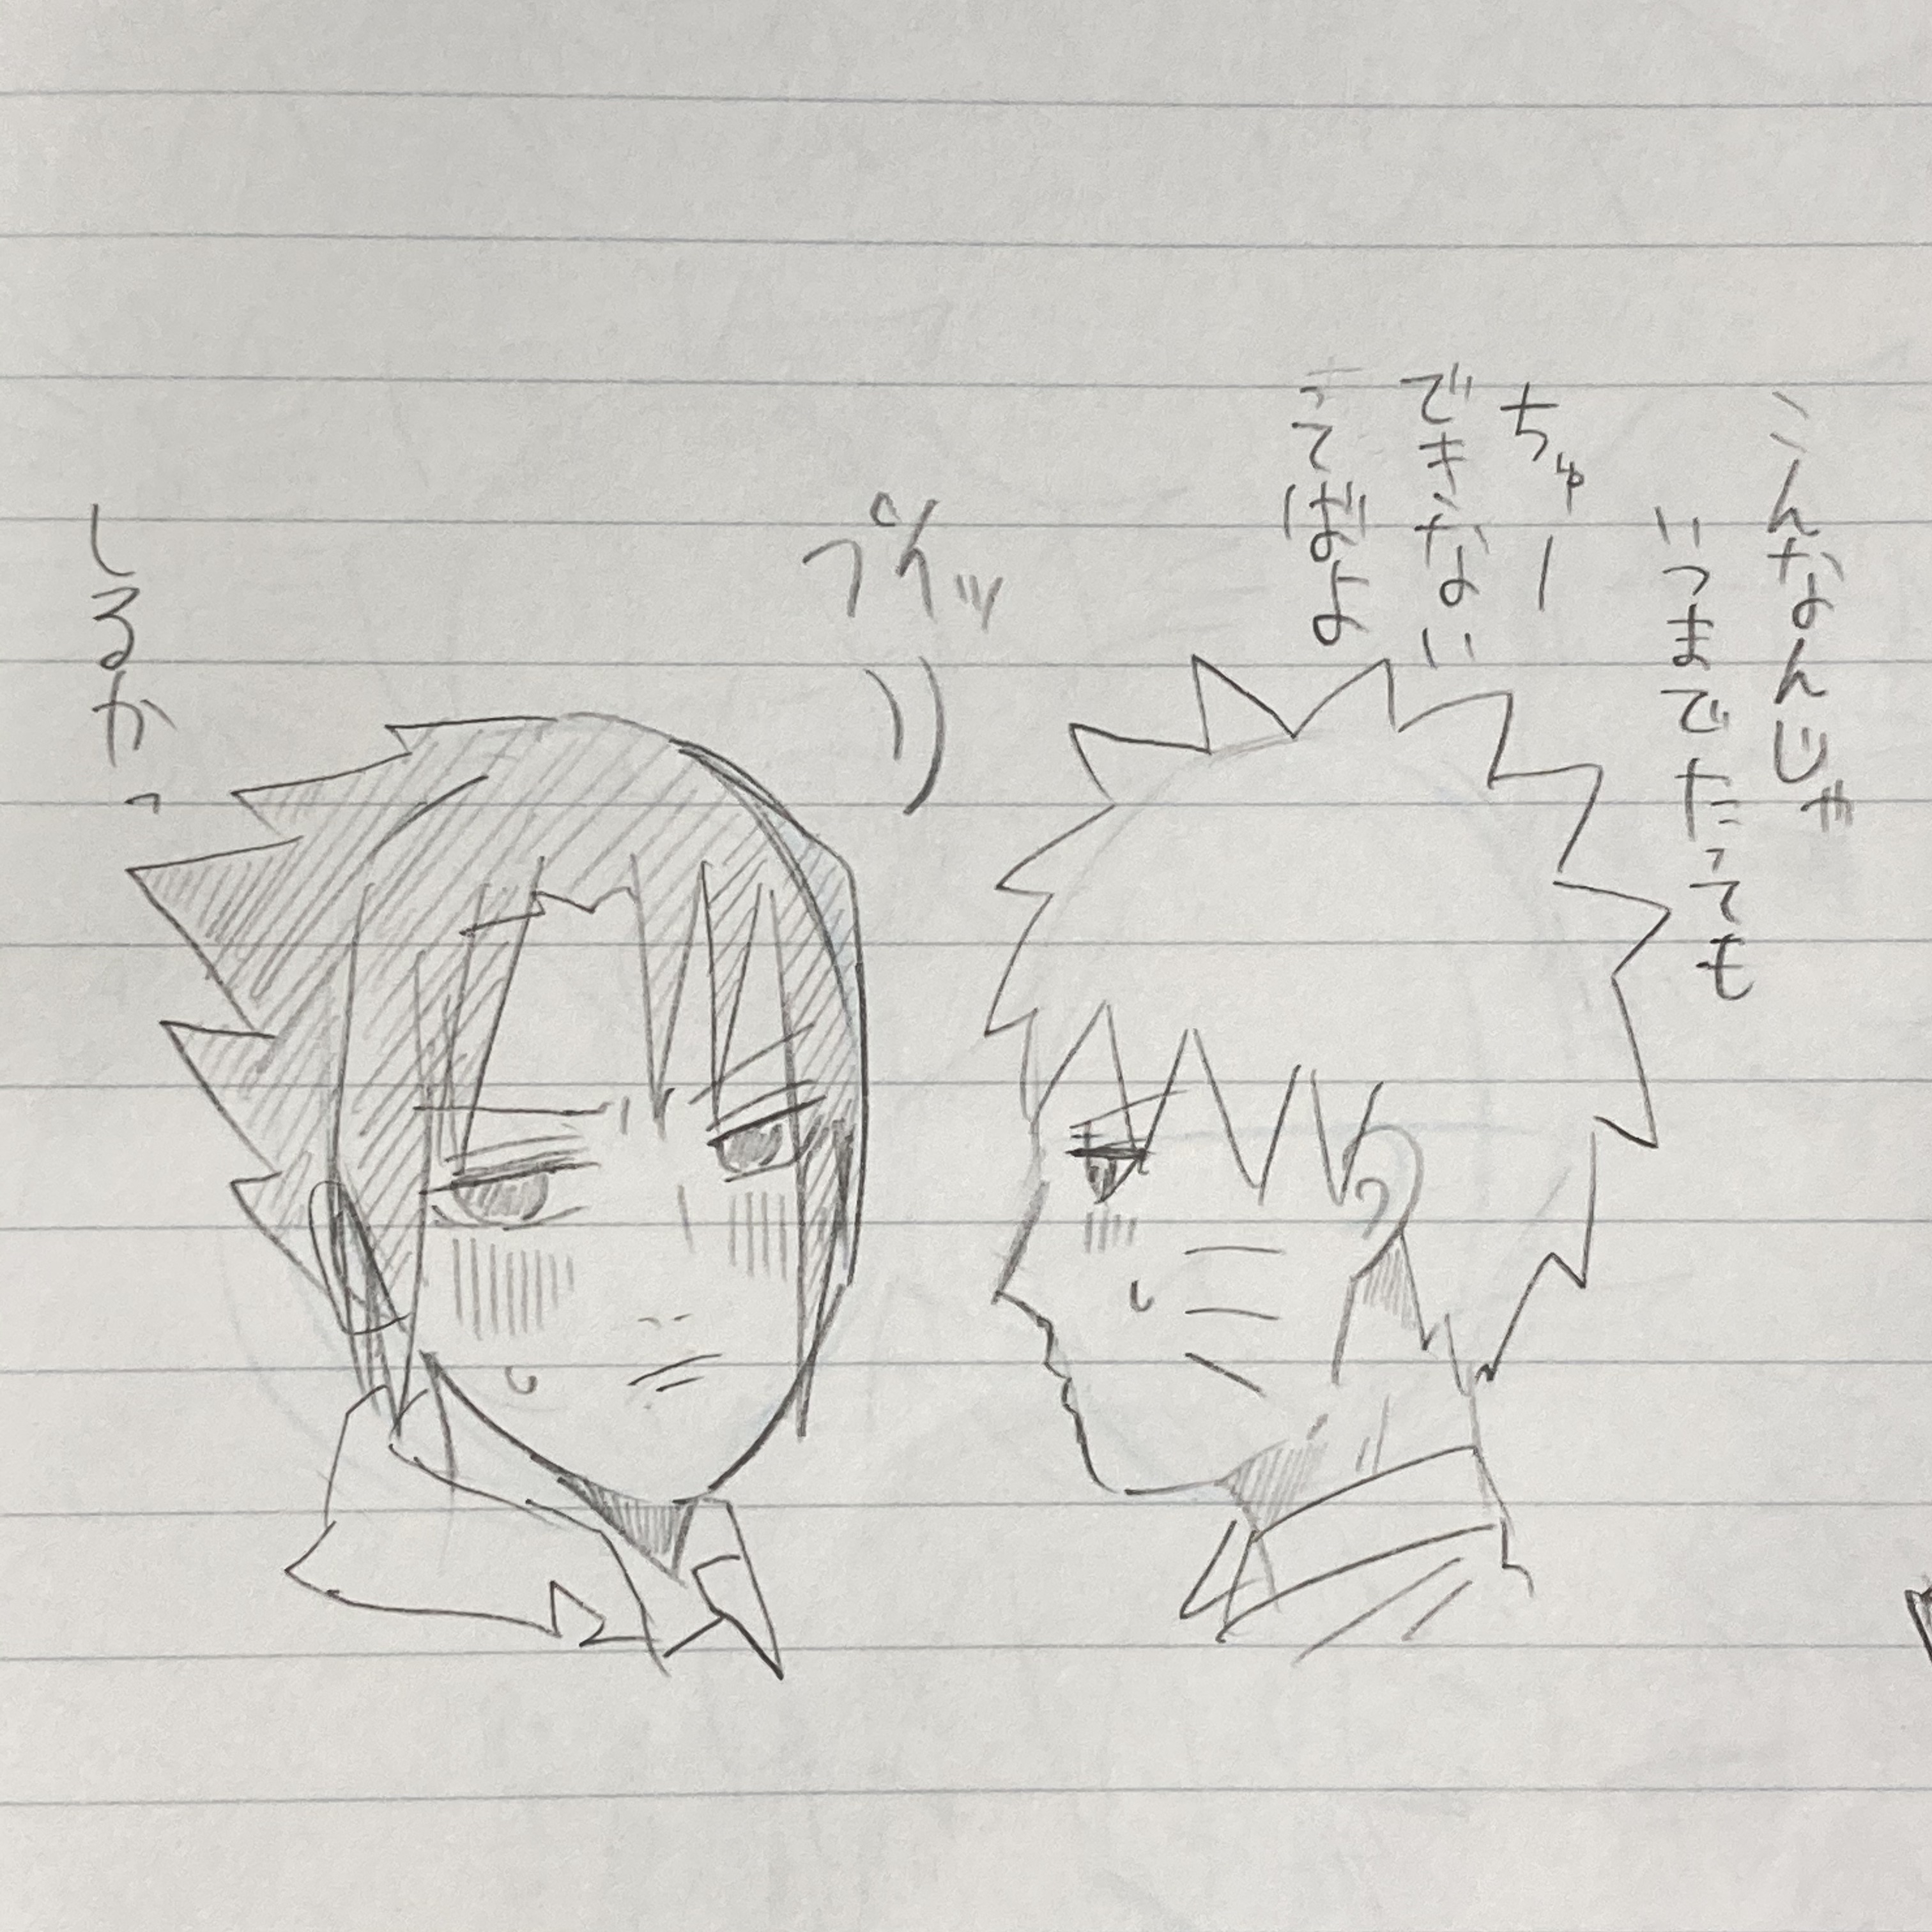 こんなんじゃ
いつまでたっても
ちゅー
できない
ってばよ
プイッ
しるかっ